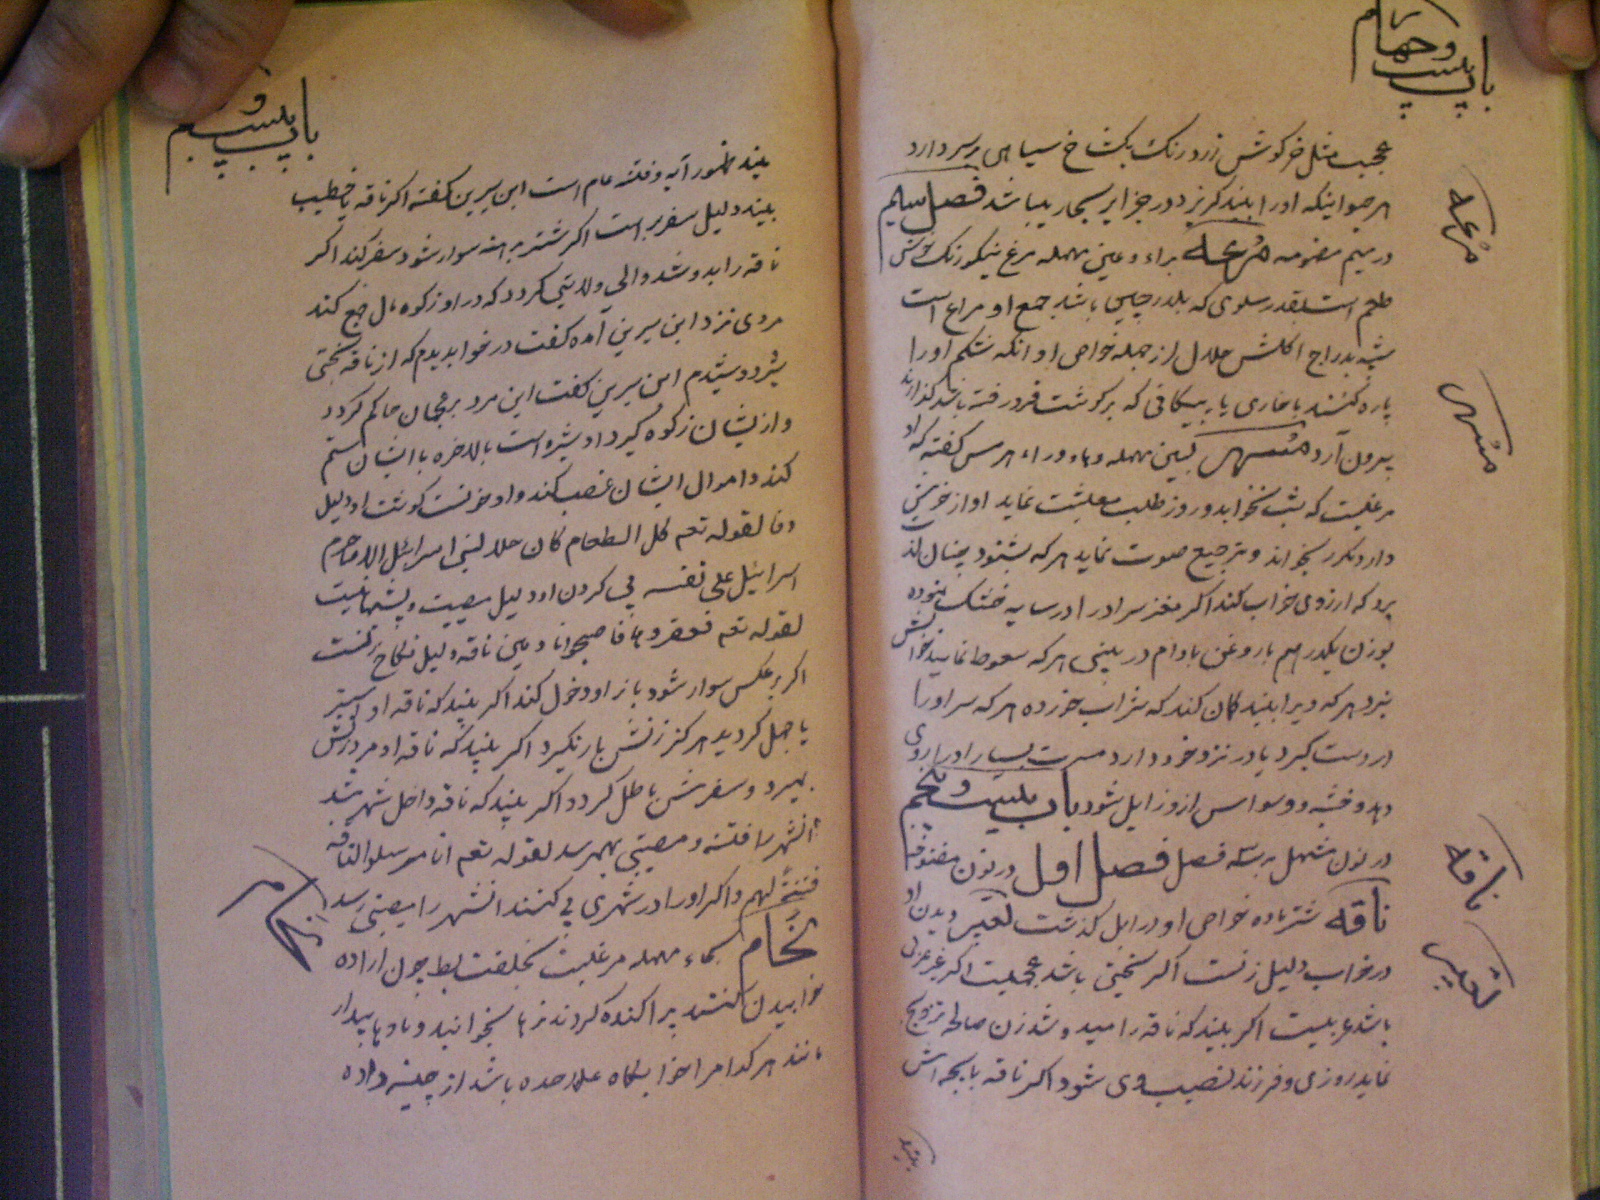 باب بیست و چهارم
عجیب مثل خرکوش زرد رنک یکشاخ سیاهی بر سر دارد
هر حیوانیکه او را بیند کریزد در جزایر بحار یباشد فصل سیم
در میم مضمومه مرعه براء و عین مهمله مرغ نیکو رنک خوش
مرعه
طعم است بقدر سلوی که بلدرچین باشد جمع او مراع است
شبیه بدراج اکلش حلال از جمله خواص او انکه شکم او را
پاره کنند با خاری یا پیکانی که بر کوشت فرو رفته باشد گذارند
بیرون آرد مسهر بسین مهمله و هاء و راء هرمس کفته که او
مسهر
مرغیست که شب نخوابد و روز طلب معیشت نماید اواز حزینی
دارد مکرر بخواند و ترجیع صوت نماید هر که بشنود چنان لذت
برد که ارزوی خواب کند اکر مغز سر او را در سایه خشک نموده
بوزن یکدرهم با روغن بادام در بینی هر که سعوط نمایند خوابش
نبرد هر که ویرا بیند کمان کند که شراب خورده هر که سر او را
در دست کیرد یا در نزد خود دارد مسرت بسیار او را روی
دهد و خشیه و وسواس از او زایل شود باب بیست و پنجم
در نون مشتمل بر سه فصل فصل اول در نون مفتوحه
ناقه شتر ماده خواص او در ابل کذشت تعبیر دیدن او
ناقه
در خواب دلیل زنست اکر بختی باشد عجمیست اکر غیر عربی
تعبیر
باشد عربیست اکر بیند که ناقه را میدوشد زن صالحه تزویج
نماید روزی و فرزند نصیب وی شود اکر ناقه با بچه اش
بیند
باب بیست و پنجم
بیند ظهور آیه و فتنه عام است ابن سیرین کفته اکر ناقه با خطیب
بیند دلیل سفر بر است اکر شتر برهنه سوار شود سفر کند اکر
ناقه را بدوشد والی ولایتی کردد که در او زکوة مال جمع کند
مردی نزد ابن سیرین آمده کفت در خواب دیدم که از ناقه بختی
شیر دوشیدم ابن سیرین کفت این مرد بر عجمان حاکم کردد
و از ایشان زکوة کیرد او شیره است بالاخره با ایشان ستم
کند و اموال ایشان غصب کند و او خونست کوشت او دلیل
وفا لقوله تعم کل الطعام کان حلا لبنی اسرائیل الا ما حرم
اسرائیل علی نفسه پی کردن او دلیل مصیبت و پشیمانیست
لقوله تعم فعقروها فاصبحوا نادمین ناقه دلیل نکاح زنست
اکر بر عکس سوار شود با زن او دخول کند اکر بیند که ناقه او استر
یا جمل کردید هرکز زنش بار نکیرد اکر بیند که ناقه او مرد زنش
بمیرد و سفرش باطل کردد اکر بیند که ناقه داخل شهر شد
انشهر را فتنه و مصیبتی بهم رسد لقوله تعم انا مرسلوا الناقه
فتنة لهم و اکر او را در شهری پی کنند انشهر را مصیبتی رسد
نحام بحاء مهمله مرغیست بخلقت بط چون اراده
نحام
خوابیدن کنند پراکنده کردند نرها بخوابند و مادها بیدار
مانند هر کدام را خوابکاه علاحده باشد از چینه داده